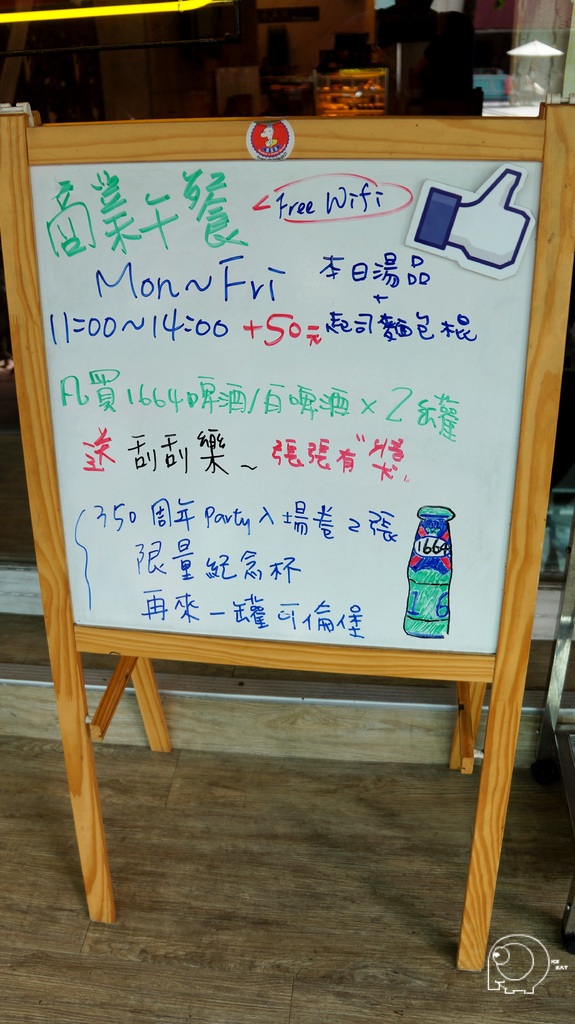 商業午餐
Free Wifi
Mon~Fri
本日湯品
+
11:00~14:00 +50元 起司麵包棍
凡買1664啤酒/白啤酒 x 2罐
送 刮刮樂~ 張張有"獎"
350周年Party入場卷2張
限量紀念杯
再來一罐可倫堡
1664
16
ICE
EAT